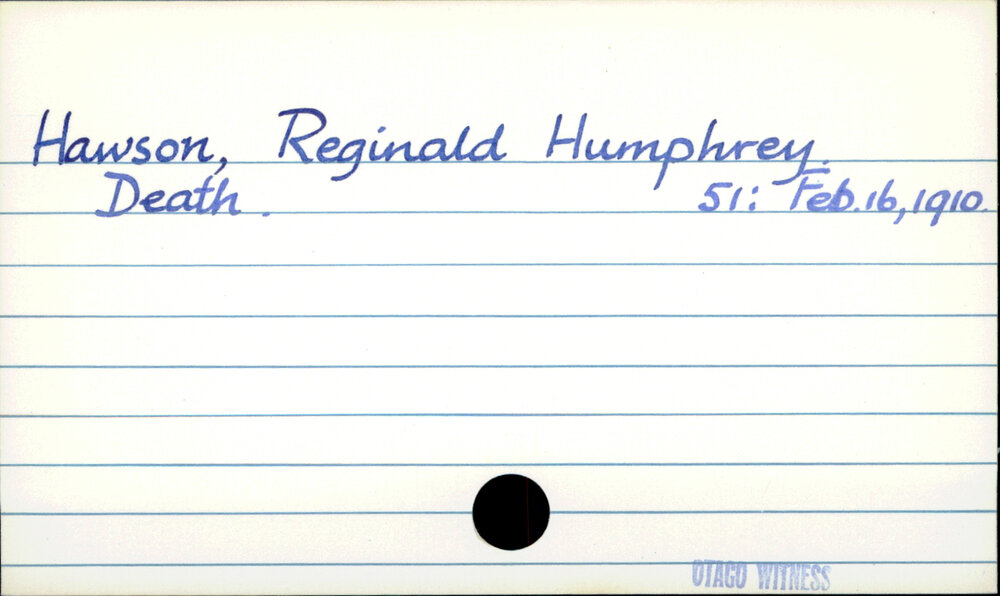 Hawson, Reginald Humphrey.
Death. 51: Feb. 16, 1910.
OTAGO WITNESS